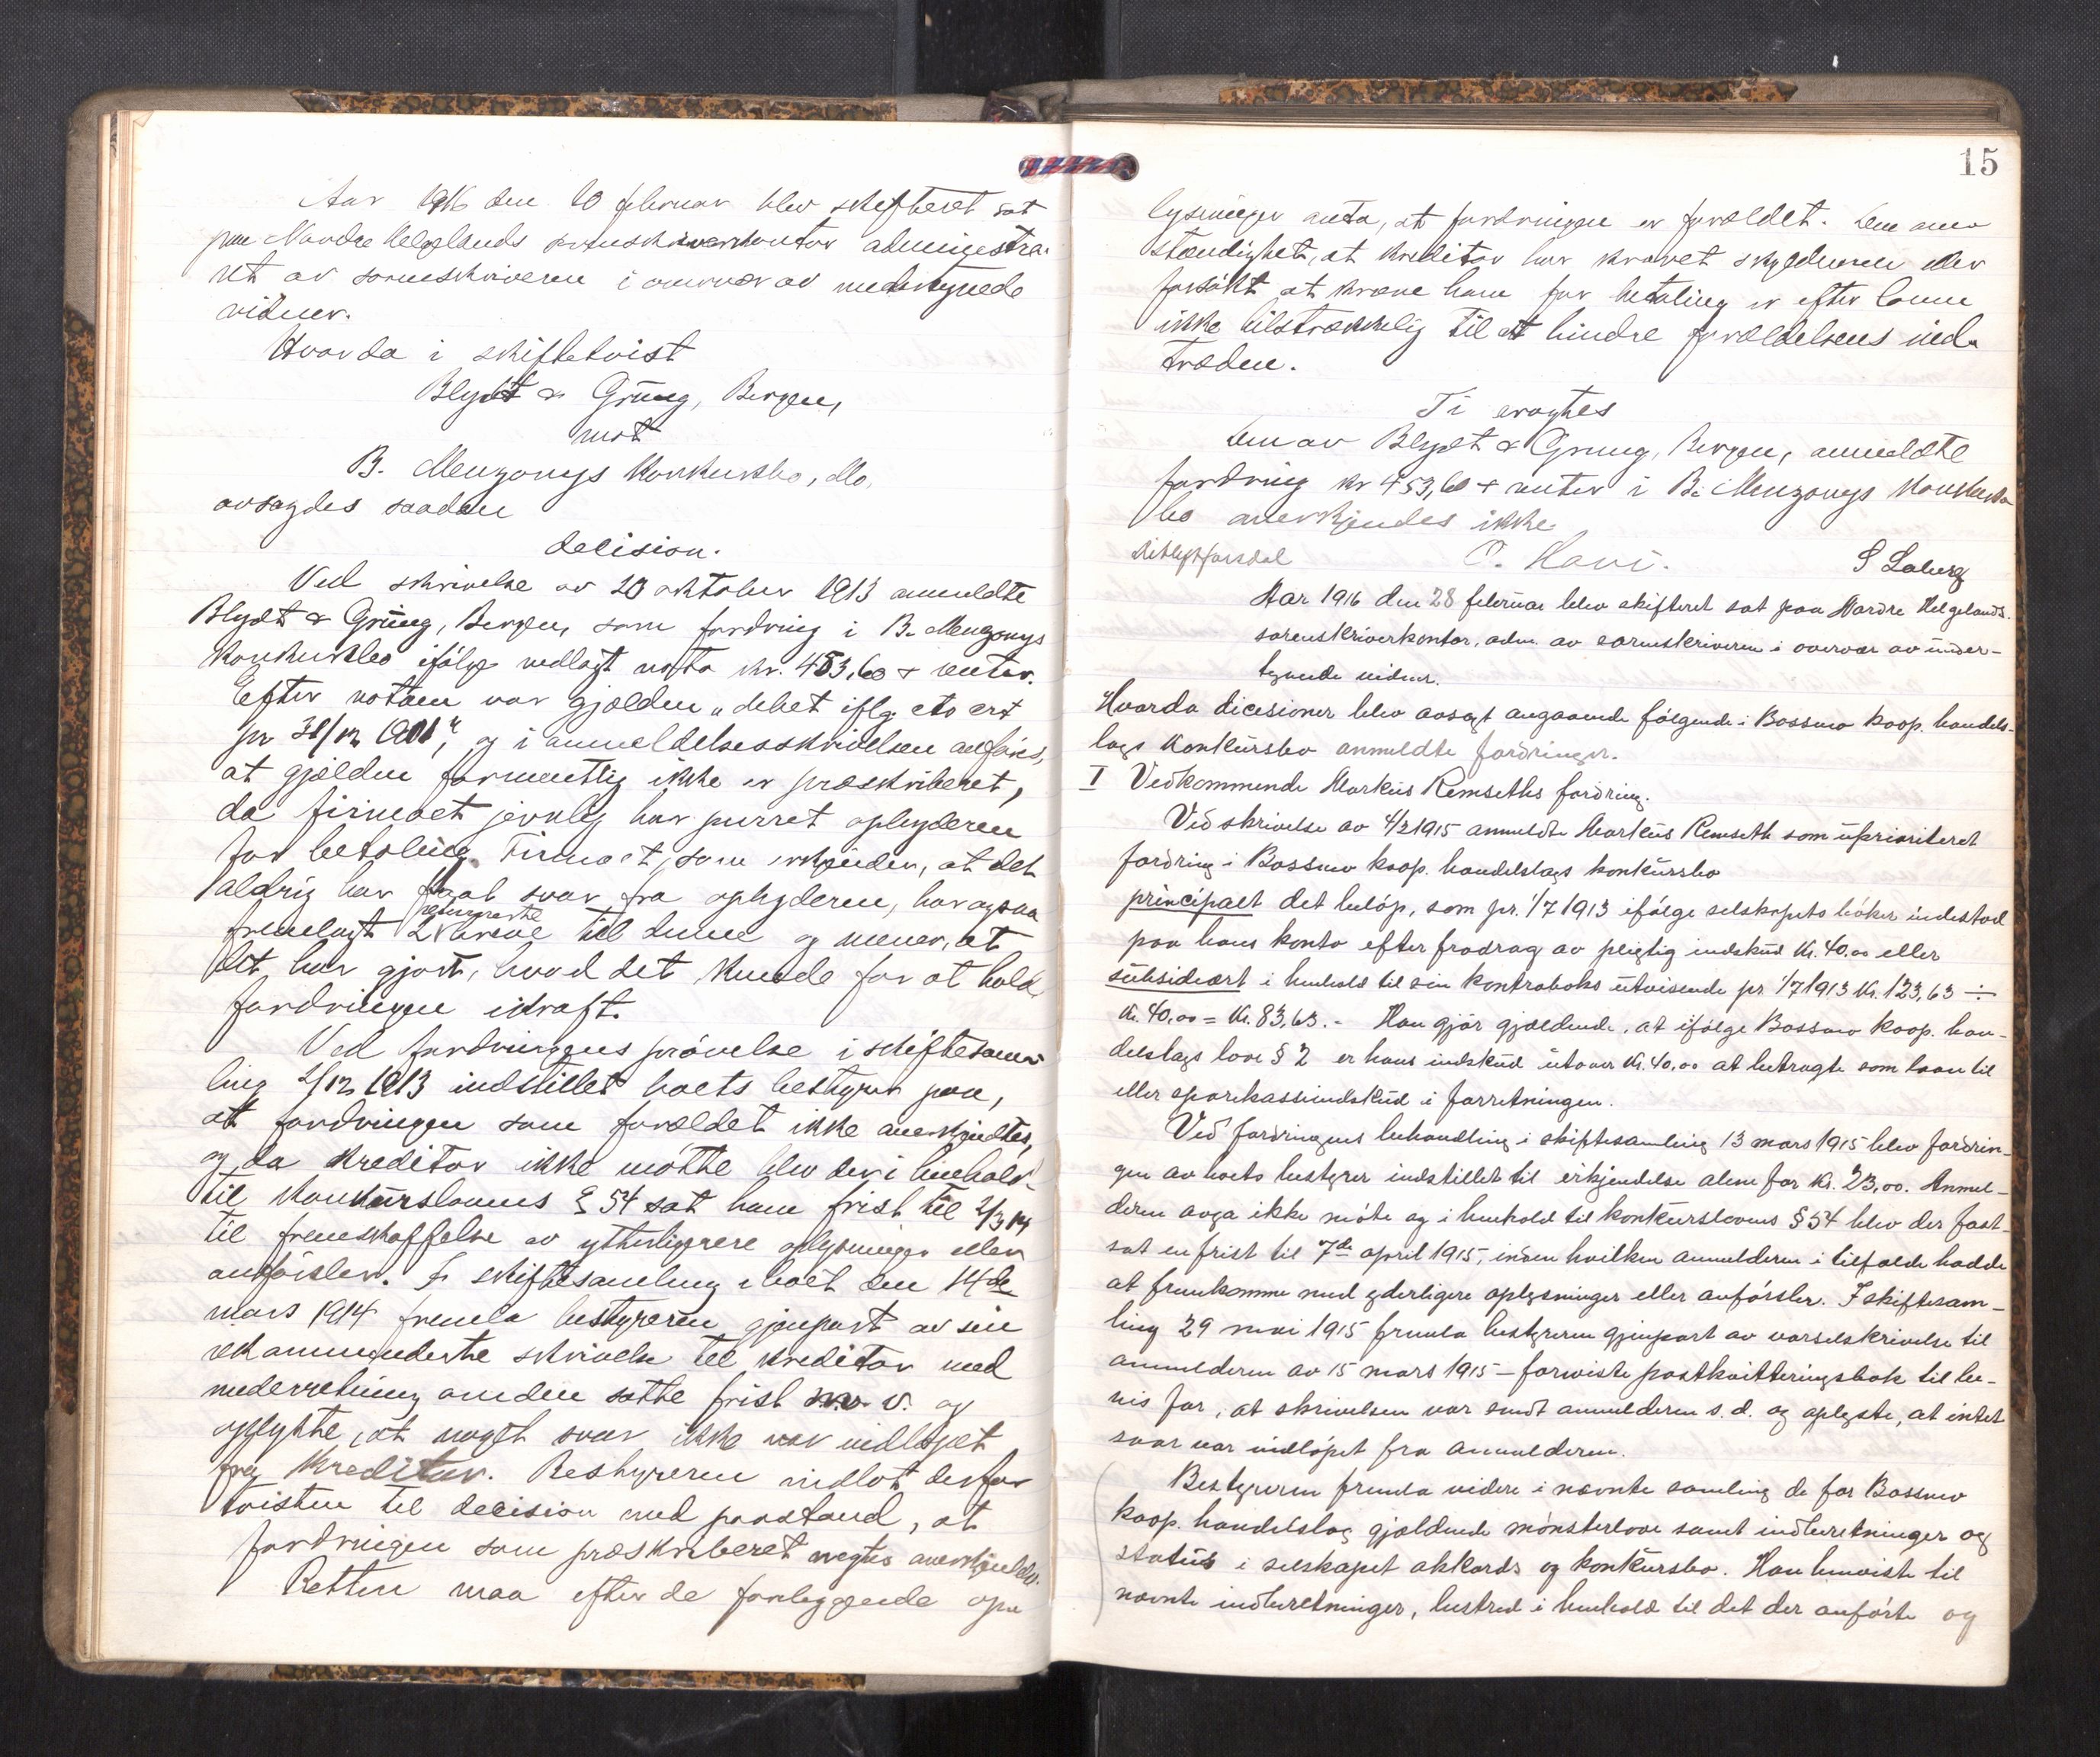 Aar 1916 den 10 februar blev skifteret sat
paa Nordre Helgelands sorenskriverkontor administre-
ret av sorenskriveren i overvær av undertegnede
vidner.
Hvorda i skiftetvist
Blydt & Grung, Bergen,
mot
B. Menzonys konkursbo, Mo,
avsagdes saadan
decision.
Ved skrivelse av 20 oktober 1913 anmeldte
Blydt & Grung, Bergen, som fordring i B. Menzonys
konkursbo ifølge vedlagt nota kr. 453,60 + renter.
Efter notaen var gjælden "debet iflg. cto crt
pr 31/12 1901", og i anmeldelsesskrivelsen anføres,
at gjælden formentlig ikke er præskriberet,
da firmaet jevnlig har purret opbyderen
for betaling. Firmaet, som erkjender, at det
aldrig har faat svar fra opbyderen, har ogsaa
fremlagt 2 returnerte breve til denne og mener, at
det har gjort, hvad det kunde for at holde
fordringen ikraft.
Ved fordringens prøvelse i skiftesam-
ling 2/12 1913 indstillet boets bestyrer paa,
at fordringen som forældet ikke anerkjendtes,
og da kreditor ikke møtte blev der i henhold
til konkurslovens § 54 sat ham frist til 2/3 14
til fremskaffelse av ytterligere oplysninger eller
anførsler. I skiftesamling i boet den 14de
mars 1914 fremla bestyreren gjenpart av sin
rekommanderte skrivelse til kreditor med
underretning om den satte frist m. v. og
oplyste, at noget svar ikke var indløpet
fra kreditor. Bestyreren indlot derfor
tvisten til decision med paastand, at
fordringen som præskriberet negtes anerkjendelse.
Retten maa efter de foreliggende op-
15
lysninger anta, at fordringen er forældet. Den om-
stændighet, at kreditor har krævet skyldneren eller
forsøkt at kræve ham for betaling er efter loven
ikke tilstrækkelig til at hindre forældelsens ind-
træden.
Ti eragtes
Den av Blydt & Grung, Bergen, anmeldte
fordring kr 453,60 + renter i B. Menzonys konkurs-
bo anerkjendes ikke
O. Havi. S Laberg
Aar 1916 den 28 februar blev skifteret sat paa Nordre Helgelands
sorenskriverkontor, adm. av sorenskriveren i overvær av under-
tegnede vidner.
Hvorda dicesioner blev avsagt angaaende følgende i Bossmo koop. handels-
lags konkursbo anmeldte fordringer.
I Vedkommende Markus Remseths fordring.
Ved skrivelse av 4/2 1915 anmeldte Markus Remseth som uprioriteret
fordring i Bossmo koop. handelslags konkursbo
principalt det beløp, som pr. 1/7 1913 ifølge selskapets bøker indestod
paa hans konto efter fradrag av pligtig indskud kr. 40,00 eller
subsidiært i henhold til sin kontrabok utvisende pr 1/7 1913 kr. 123,63 ÷
kr. 40,00 = kr. 83,63.- Han gjør gjældende, at ifølge Bossmo koop. han-
delslags love § 2 er hans indskud utover kr. 40,00 at betragte som laan til
eller sparekasseindskud i forretningen.
Ved fordringens behandling i skiftesamling 13 mars 1915 blev fordrin-
gen av boets bestyrer indstillet til erkjendelse alene for kr. 23,00. Anmel-
deren avga ikke møte og i henhold til konkurslovens § 54 blev der fast-
sat en frist til 7de april 1915, inden hvilken anmelderen i tilfælde hadde
at fremkomme med yderligere oplysninger eller anførsler. I skiftesam-
ling 29 mai 1915 fremla bestyreren gjenpart av varselskrivelse til
anmelderen av 15 mars 1915 - forviste postkvitteringsbok til be-
vis for, at skrivelsen var sendt anmelderen s. d. og oplyste, at intet
svar var indløpet fra anmelderen.
Bestyreren fremla videre i nævnte samling de for Bossmo
koop. handelslag gjældende mønsterlove samt indberetninger og
status i selskapet akkords og konkursbo. Han henviste til
nævnte indberetninger, bestred i henhold til det der anførte og